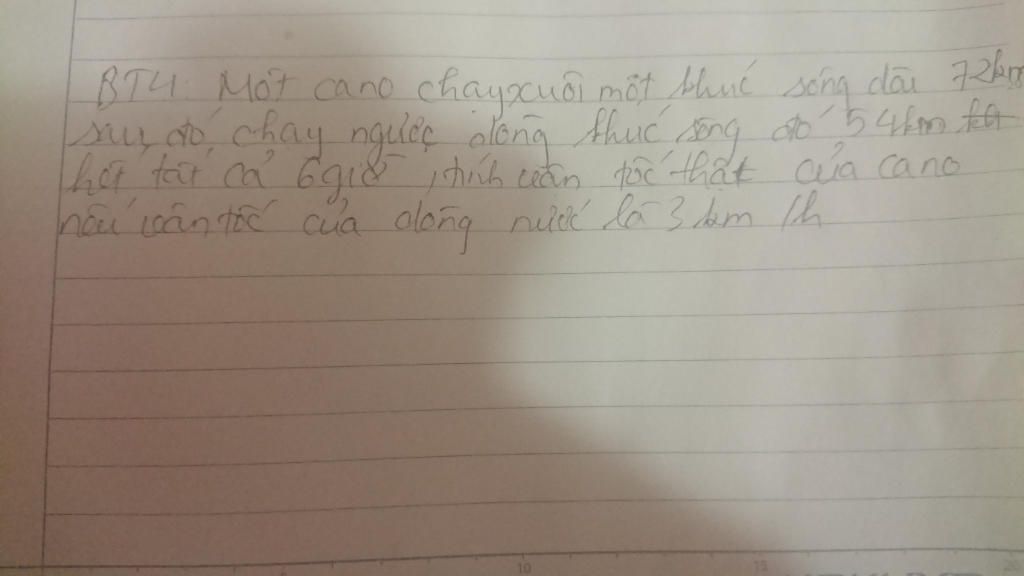 BT4: Một cano chạy xuôi một khúc sông dài 72km
sau đó, chạy ngược dòng khúc sông đó 54km
hết tất cả 6 giờ, tính vận tốc thật của cano
nếu vận tốc của dòng nước là 3 km/h
10
15
20